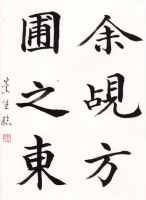 余覘方
圃之東